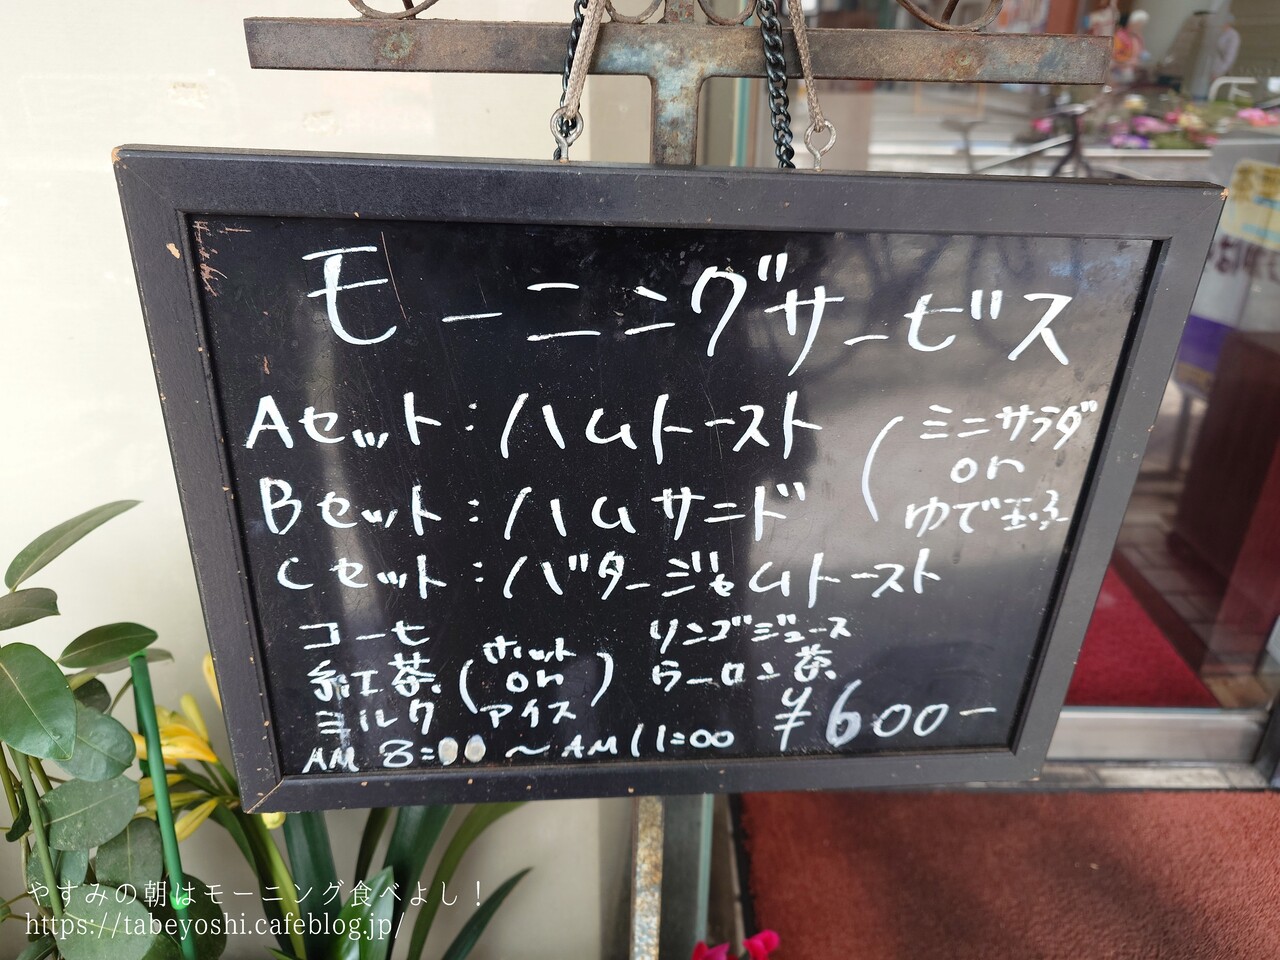 モーニングサービス
Aセット:ハムトースト
Bセット:ハムサンド
(ミニサラダ
or
ゆで玉子
Cセット:バタージャムトースト
コーヒ
紅茶
ミルク
(ホット
or
アイス)
リンゴジュース
ウーロン茶
¥600ー
AM 8:00 〜 AM 11:00
やすみの朝はモーニング食べよし!
https://tabeyoshi.cafeblog.jp/